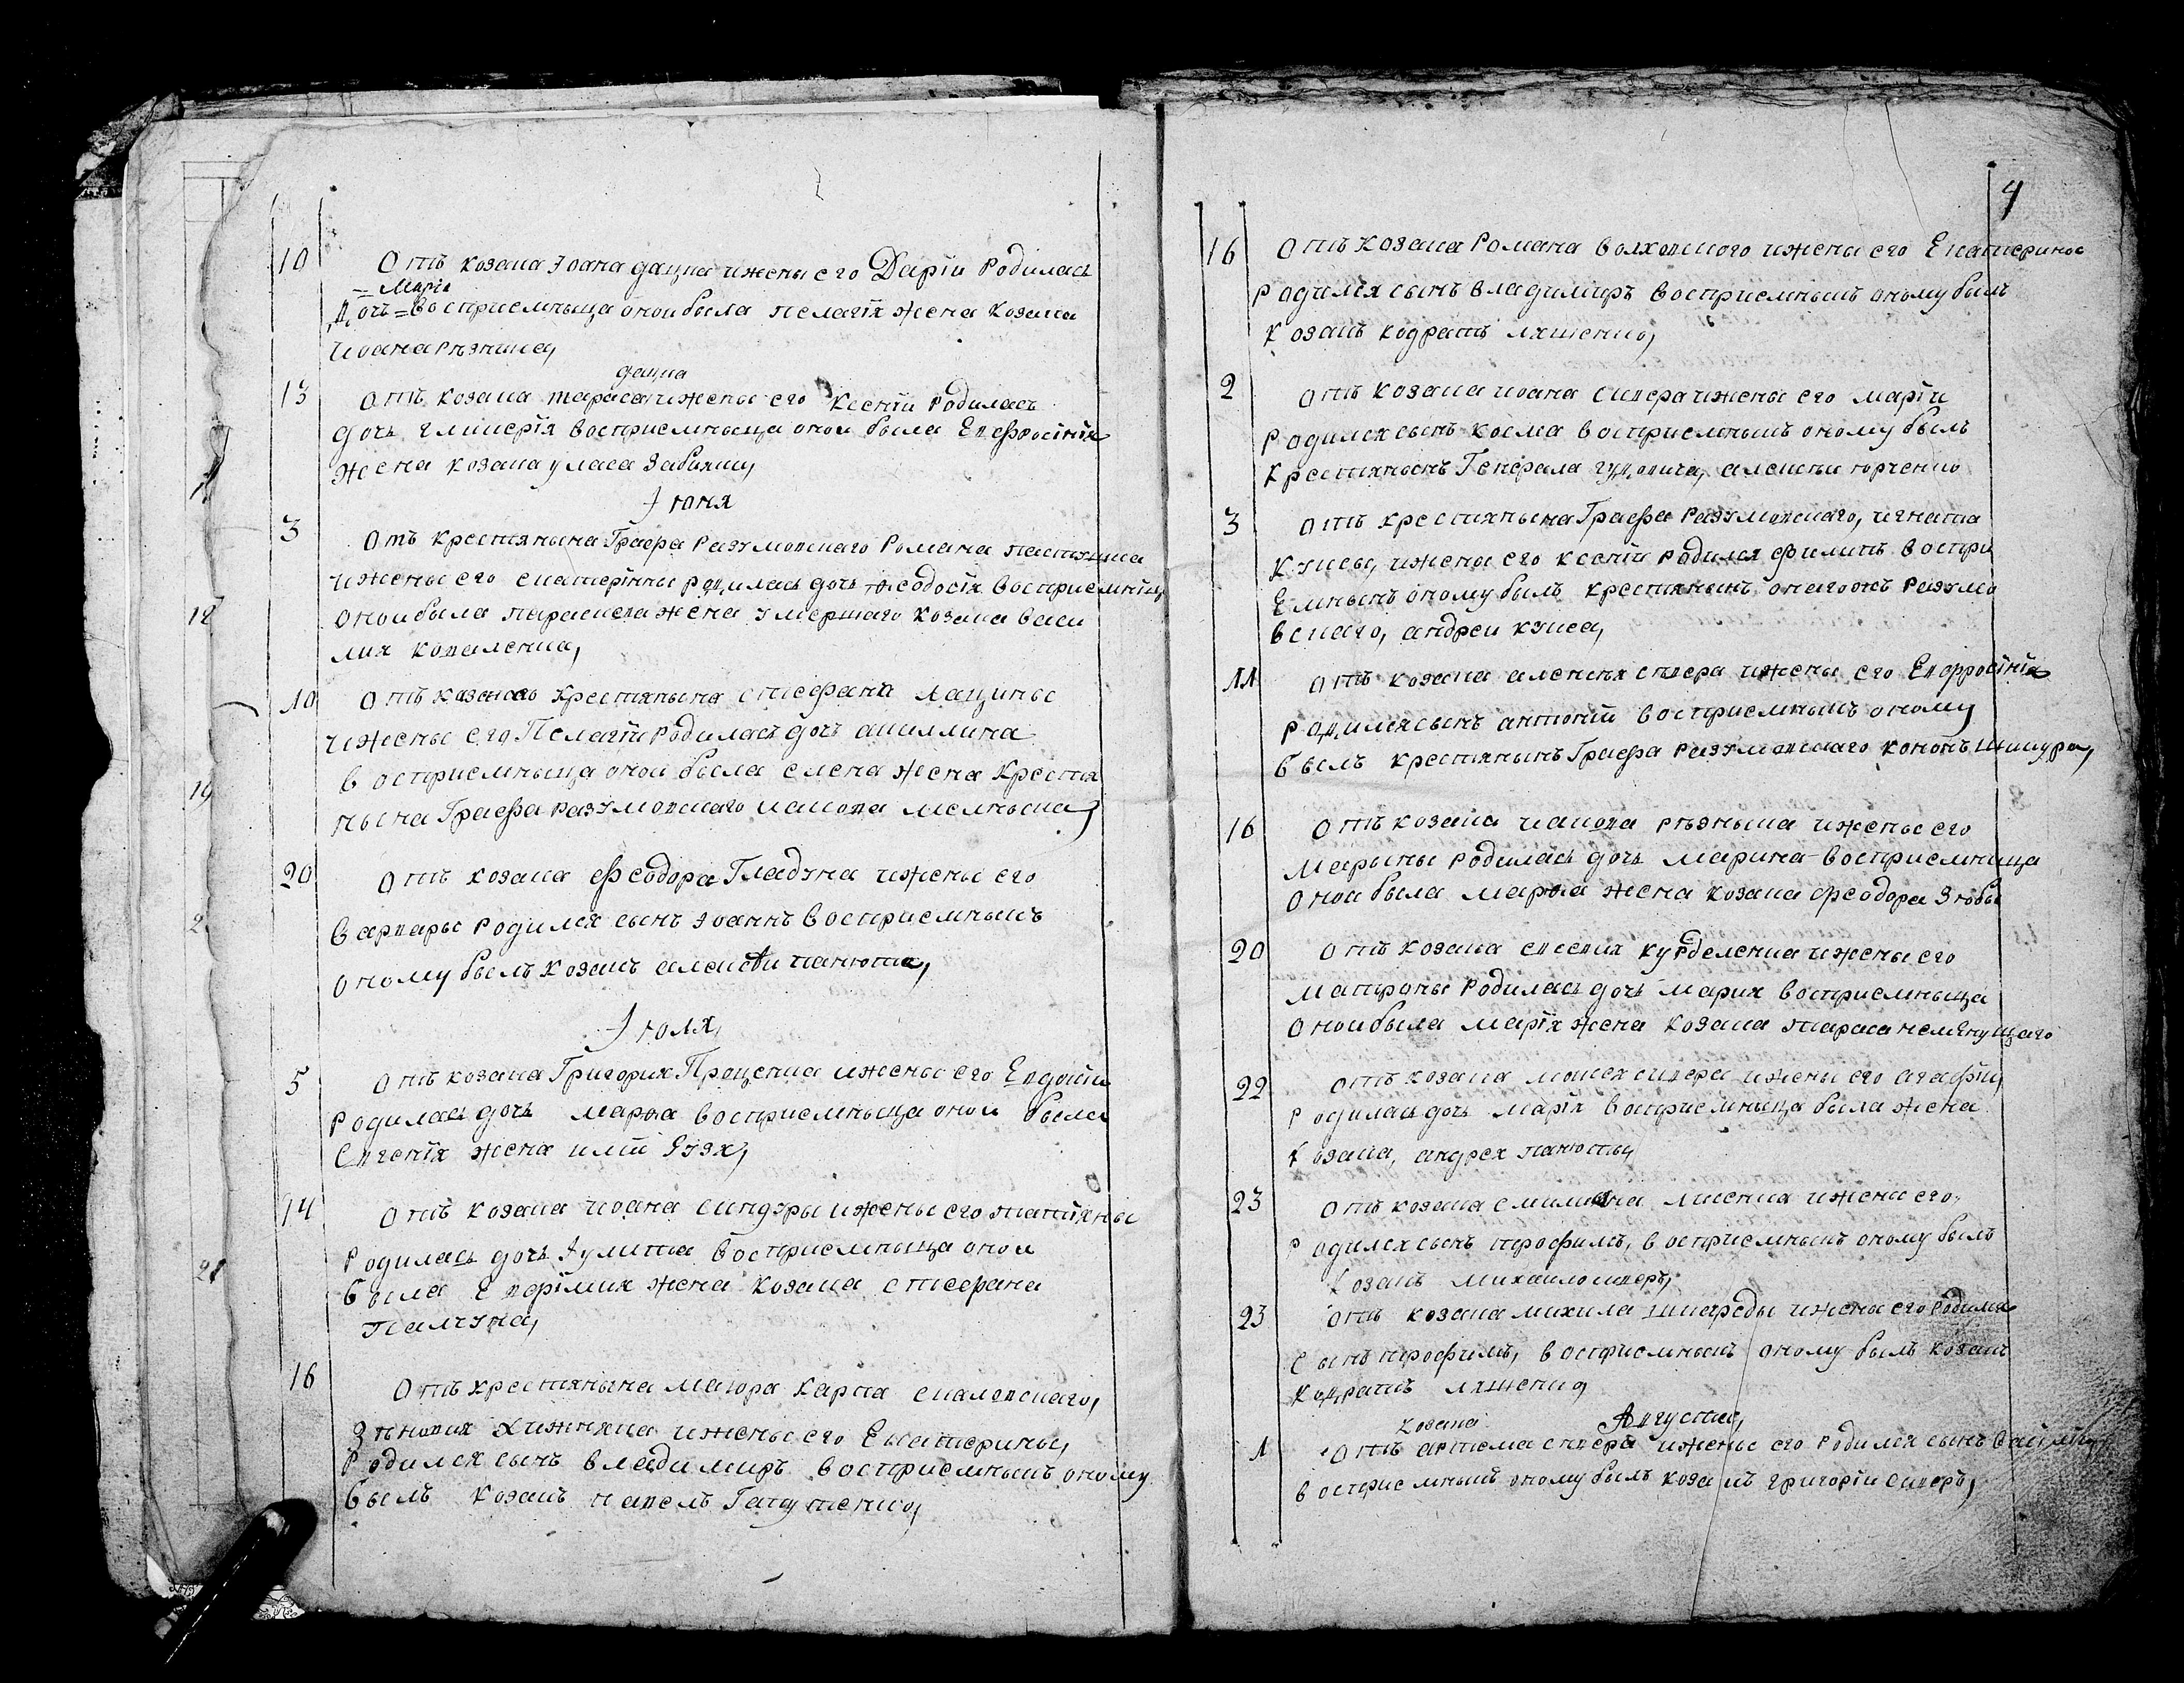 10 Отъ козака Іоана дацка ижены его Даріи Родилась
= Маріа
дочъ = Восприемныца онои была пелагія жена козака
Иоана Резныка,
дацка
13 Отъ козака тараса ижены его Ксеніи Родилась
дочь Гликерія восприемныца онои была Евфросінія
жена козака уласа Забіяки,
Іюня
3 Отъ крестяныныа Графа Разумовскаго Романа
ижены его екатерінны родилась дочь феодосія восприемніца
онои была параскева жена умершаго козака васи
лия коваленка,
10 Отъ крестянына стефана лацины
ижены его Пелагіи Родилась дочь акилина
восприемныца онои была елена жена крестя
нына Графа Разумовскаго иакова мелныка,
20 Отъ козака Феодора Гладуна ижены его
Варвары Родился сынъ Іоаннъ восприемныкъ
оному былъ козакъ алексеи панюта,
Іюля,
5 Отъ козака Григория Проценка ижены его Евдокіи
Родилась дочь марѳа восприемныца онои была
Евгенія жена иліи
14 Отъ козака иоана ижены его татіяны
Родилась дочь Іулита восприемныца онои
была Евфімия жена козака стефана
Палчуна,
16 Отъ крестянына маіора Карпа
Зѣновия ижены его Екатерины,
Родился сынъ владимиръ восприемныкъ оному
былъ козакъ павелъ
4
16 Отъ козака Романа волховского ижены его Екатерины
Родился сынъ владимиръ восприемныкъ оному былъ
козакъ кодратъ ляшенко,
2 Отъ козака иоана сквера ижены его маріи
Родился сынъ косма восприемныкъ оному былъ
крестянынъ Генерала гудовича, алексеи юрченко
3 Отъ крестянына Графа Разумовскаго, игната
кукси, ижены его ксеніи родился филипъ воспри
емныкъ оному былъ крестянынъ онагожъ Разумо
вскаго, андреи кукса,
11 Отъ козака алексея сквера ижены его Евфросініи
Родился сынъ антоніи восприемныкъ оному
былъ крестянынъ Графа Разумовскаго кононъ шикура,
16 Отъ козака иакова резныка ижены его
марыны родилась дочь марина восприемница
онои была марѳа жена козака феодора Зюбы
20 Отъ козака евсевия курделенка ижены его
матроны Родилась дочь мария восприемныца
онои была марія жена козака тараса немянущаго
22 Отъ козака моисея сквера ижены его агафіи,
Родилась дочь марія восприемныца была жена
козака, андрея панюты,
23 Отъ козака емилиана лисенка ижены его,
Родился сынъ трофимъ, восприемныкъ оному былъ
козакъ михаило скверъ,
23 Отъ козака михила шкареды ижены его Родился
сынъ трофимъ, восприемныкъ оному былъ козакъ
кодратъ ляшенко,
козака Августа,
1 Отъ артема сквера ижены его Родился сынъ
восприемныкъ оному былъ козакъ григоріи скверъ,